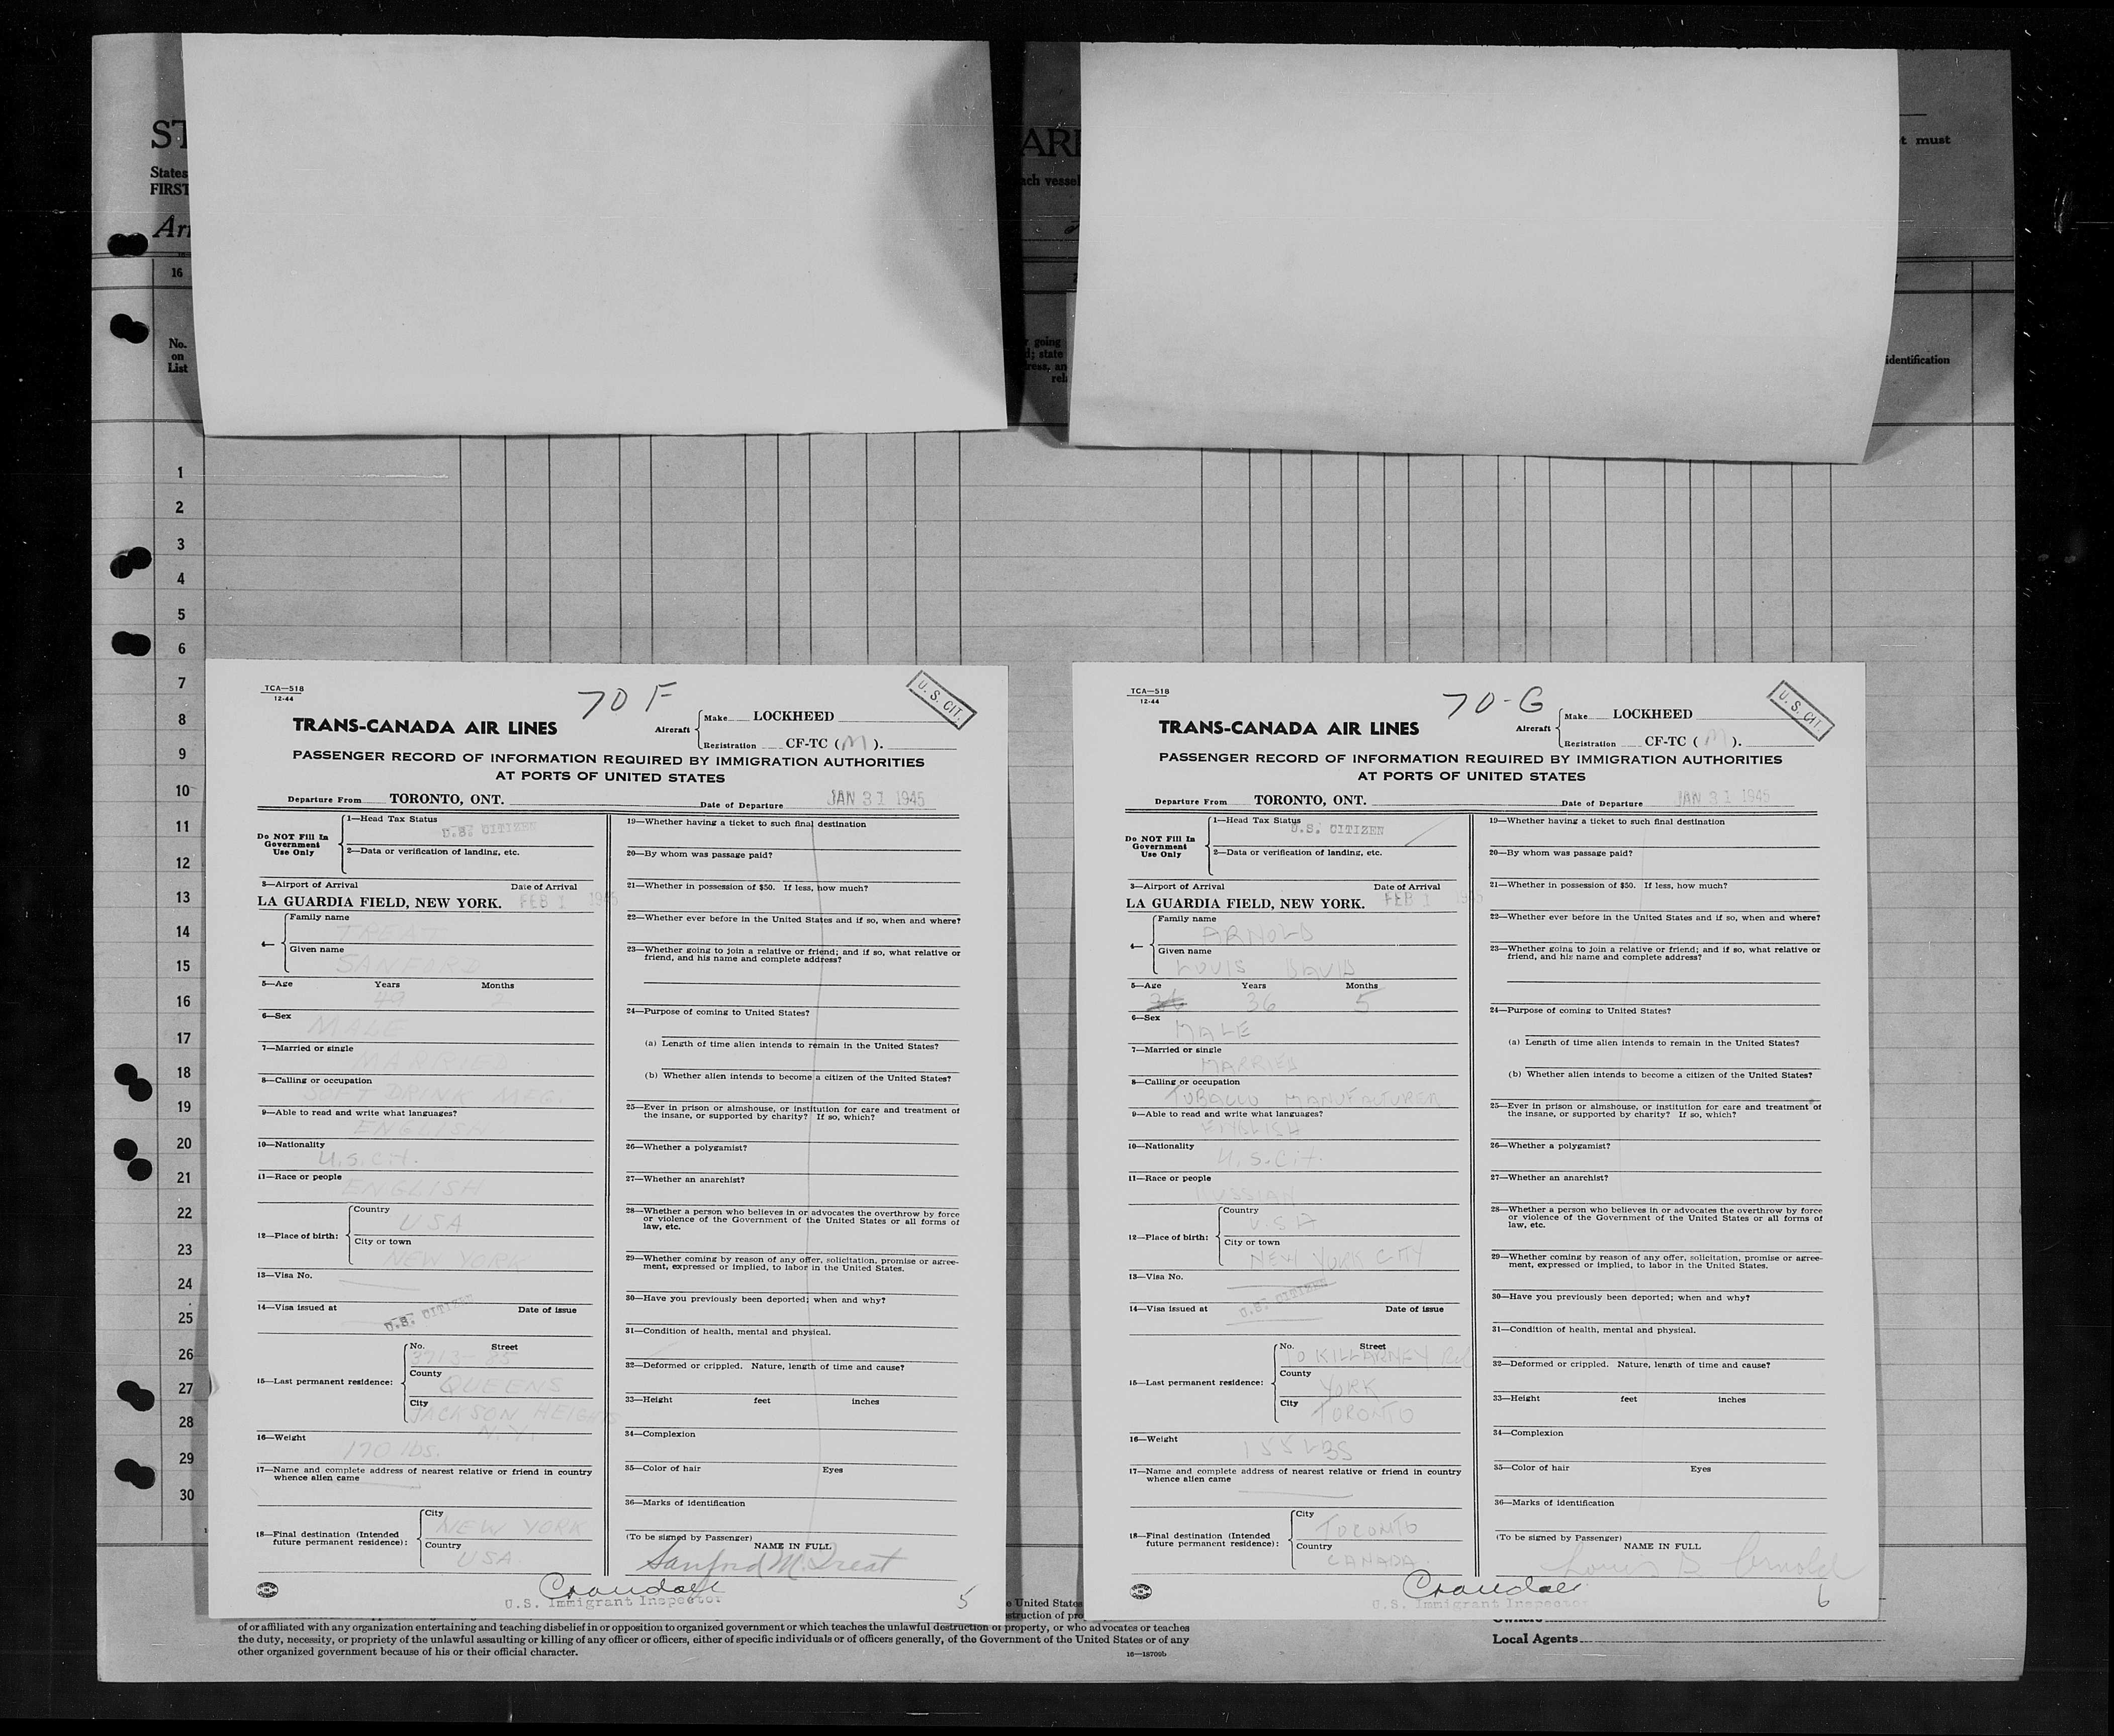 ST
ARE
t must
States
FIRST
ach vessel
Arr
16
No.
on
List
r going
d; state
ress, an
rel
identification
1
2
3
4
5
6
7
8
9
10
11
12
13
14
15
16
17
18
19
20
21
22
23
24
25
26
27
28
29
30
TCA—518
12-44
70 F
U. S. CIT.
TRANS-CANADA AIR LINES
Aircraft
Make LOCKHEED
Registration CF-TC (M).
PASSENGER RECORD OF INFORMATION REQUIRED BY IMMIGRATION AUTHORITIES
AT PORTS OF UNITED STATES
Departure From TORONTO, ONT. Date of Departure JAN 31 1945
Do NOT Fill In
Government
Use Only
1—Head Tax Status
U.S. CITIZEN
2—Data or verification of landing, etc.
3—Airport of Arrival Date of Arrival
LA GUARDIA FIELD, NEW YORK. FEB 1 1945
4—
Family name
TREAT
Given name
SANFORD
5—Age Years Months
49 2
6—Sex
MALE
7—Married or single
MARRIED
8—Calling or occupation
SOFT DRINK MFG.
9—Able to read and write what languages?
ENGLISH
10—Nationality
U.S. Cit.
11—Race or people
ENGLISH
12—Place of birth:
Country
USA
City or town
NEW YORK
13—Visa No.
14—Visa issued at Date of issue
U.S. CITIZEN
15—Last permanent residence:
No. Street
3713-85
County
QUEENS
City
JACKSON HEIGHTS
N.Y.
16—Weight
170 lbs.
17—Name and complete address of nearest relative or friend in country
whence alien came
18—Final destination (Intended
future permanent residence):
City
NEW YORK
Country
USA.
19—Whether having a ticket to such final destination
20—By whom was passage paid?
21—Whether in possession of $50. If less, how much?
22—Whether ever before in the United States and if so, when and where?
23—Whether going to join a relative or friend; and if so, what relative or
friend, and his name and complete address?
24—Purpose of coming to United States?
(a) Length of time alien intends to remain in the United States?
(b) Whether alien intends to become a citizen of the United States?
25—Ever in prison or almshouse, or institution for care and treatment of
the insane, or supported by charity? If so, which?
26—Whether a polygamist?
27—Whether an anarchist?
28—Whether a person who believes in or advocates the overthrow by force
or violence of the Government of the United States or all forms of
law, etc.
29—Whether coming by reason of any offer, solicitation, promise or agree-
ment, expressed or implied, to labor in the United States.
30—Have you previously been deported; when and why?
31—Condition of health, mental and physical.
32—Deformed or crippled. Nature, length of time and cause?
33—Height feet inches
34—Complexion
35—Color of hair Eyes
36—Marks of identification
(To be signed by Passenger)
NAME IN FULL
Sanford M. Treat
Crandall
U.S. Immigrant Inspector
5
TCA—518
12-44
70-G
U. S. CIT
TRANS-CANADA AIR LINES
Aircraft
Make LOCKHEED
Registration CF-TC (M).
PASSENGER RECORD OF INFORMATION REQUIRED BY IMMIGRATION AUTHORITIES
AT PORTS OF UNITED STATES
Departure From TORONTO, ONT. Date of Departure JAN 31 1945
Do NOT Fill In
Government
Use Only
1—Head Tax Status
U.S. CITIZEN
2—Data or verification of landing, etc.
3—Airport of Arrival Date of Arrival
LA GUARDIA FIELD, NEW YORK. FEB 1 1945
4—
Family name
ARNOLD
Given name
LOUIS DAVID
5—Age Years Months
36 36 5
6—Sex
MALE
7—Married or single
MARRIED
8—Calling or occupation
TOBACCO MANUFACTURER
9—Able to read and write what languages?
ENGLISH
10—Nationality
U.S. Cit.
11—Race or people
RUSSIAN
12—Place of birth:
Country
U.S.A
City or town
NEW YORK CITY
13—Visa No.
14—Visa issued at Date of issue
U.S. CITIZEN
15—Last permanent residence:
No. Street
10 KILLARNEY Rd
County
YORK
City
TORONTO
16—Weight
155 LBS
17—Name and complete address of nearest relative or friend in country
whence alien came
18—Final destination (Intended
future permanent residence):
City
TORONTO
Country
CANADA.
19—Whether having a ticket to such final destination
20—By whom was passage paid?
21—Whether in possession of $50. If less, how much?
22—Whether ever before in the United States and if so, when and where?
23—Whether going to join a relative or friend; and if so, what relative or
friend, and his name and complete address?
24—Purpose of coming to United States?
(a) Length of time alien intends to remain in the United States?
(b) Whether alien intends to become a citizen of the United States?
25—Ever in prison or almshouse, or institution for care and treatment of
the insane, or supported by charity? If so, which?
26—Whether a polygamist?
27—Whether an anarchist?
28—Whether a person who believes in or advocates the overthrow by force
or violence of the Government of the United States or all forms of
law, etc.
29—Whether coming by reason of any offer, solicitation, promise or agree-
ment, expressed or implied, to labor in the United States.
30—Have you previously been deported; when and why?
31—Condition of health, mental and physical.
32—Deformed or crippled. Nature, length of time and cause?
33—Height feet inches
34—Complexion
35—Color of hair Eyes
36—Marks of identification
(To be signed by Passenger)
NAME IN FULL
Louis D. Arnold
Crandall
U.S. Immigrant Inspector
6
e United States
struction of pro
of or affiliated with any organization entertaining and teaching disbelief in or opposition to organized government or which teaches the unlawful destruction of property, or who advocates or teaches
the duty, necessity, or propriety of the unlawful assaulting or killing of any officer or officers, either of specific individuals or of officers generally, of the Government of the United States or of any
other organized government because of his or their official character.
16—18709b
Owners
Local Agents